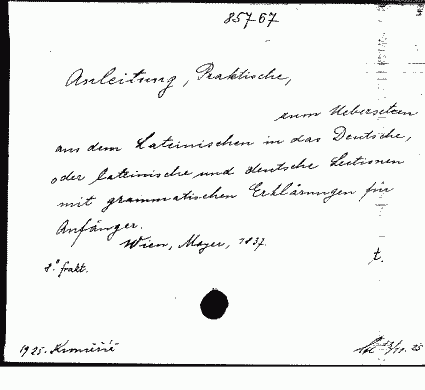 85767
Anleitung, Praktische,
zum Uebersetzen
aus dem Lateinischen in das Deutsche,
oder lateinische und deutsche Lectionen
mit grammatischen Erklärungen für
Anfänger.
Wien, Mayer, 1837.
8.° frakt.
t.
1925.
25